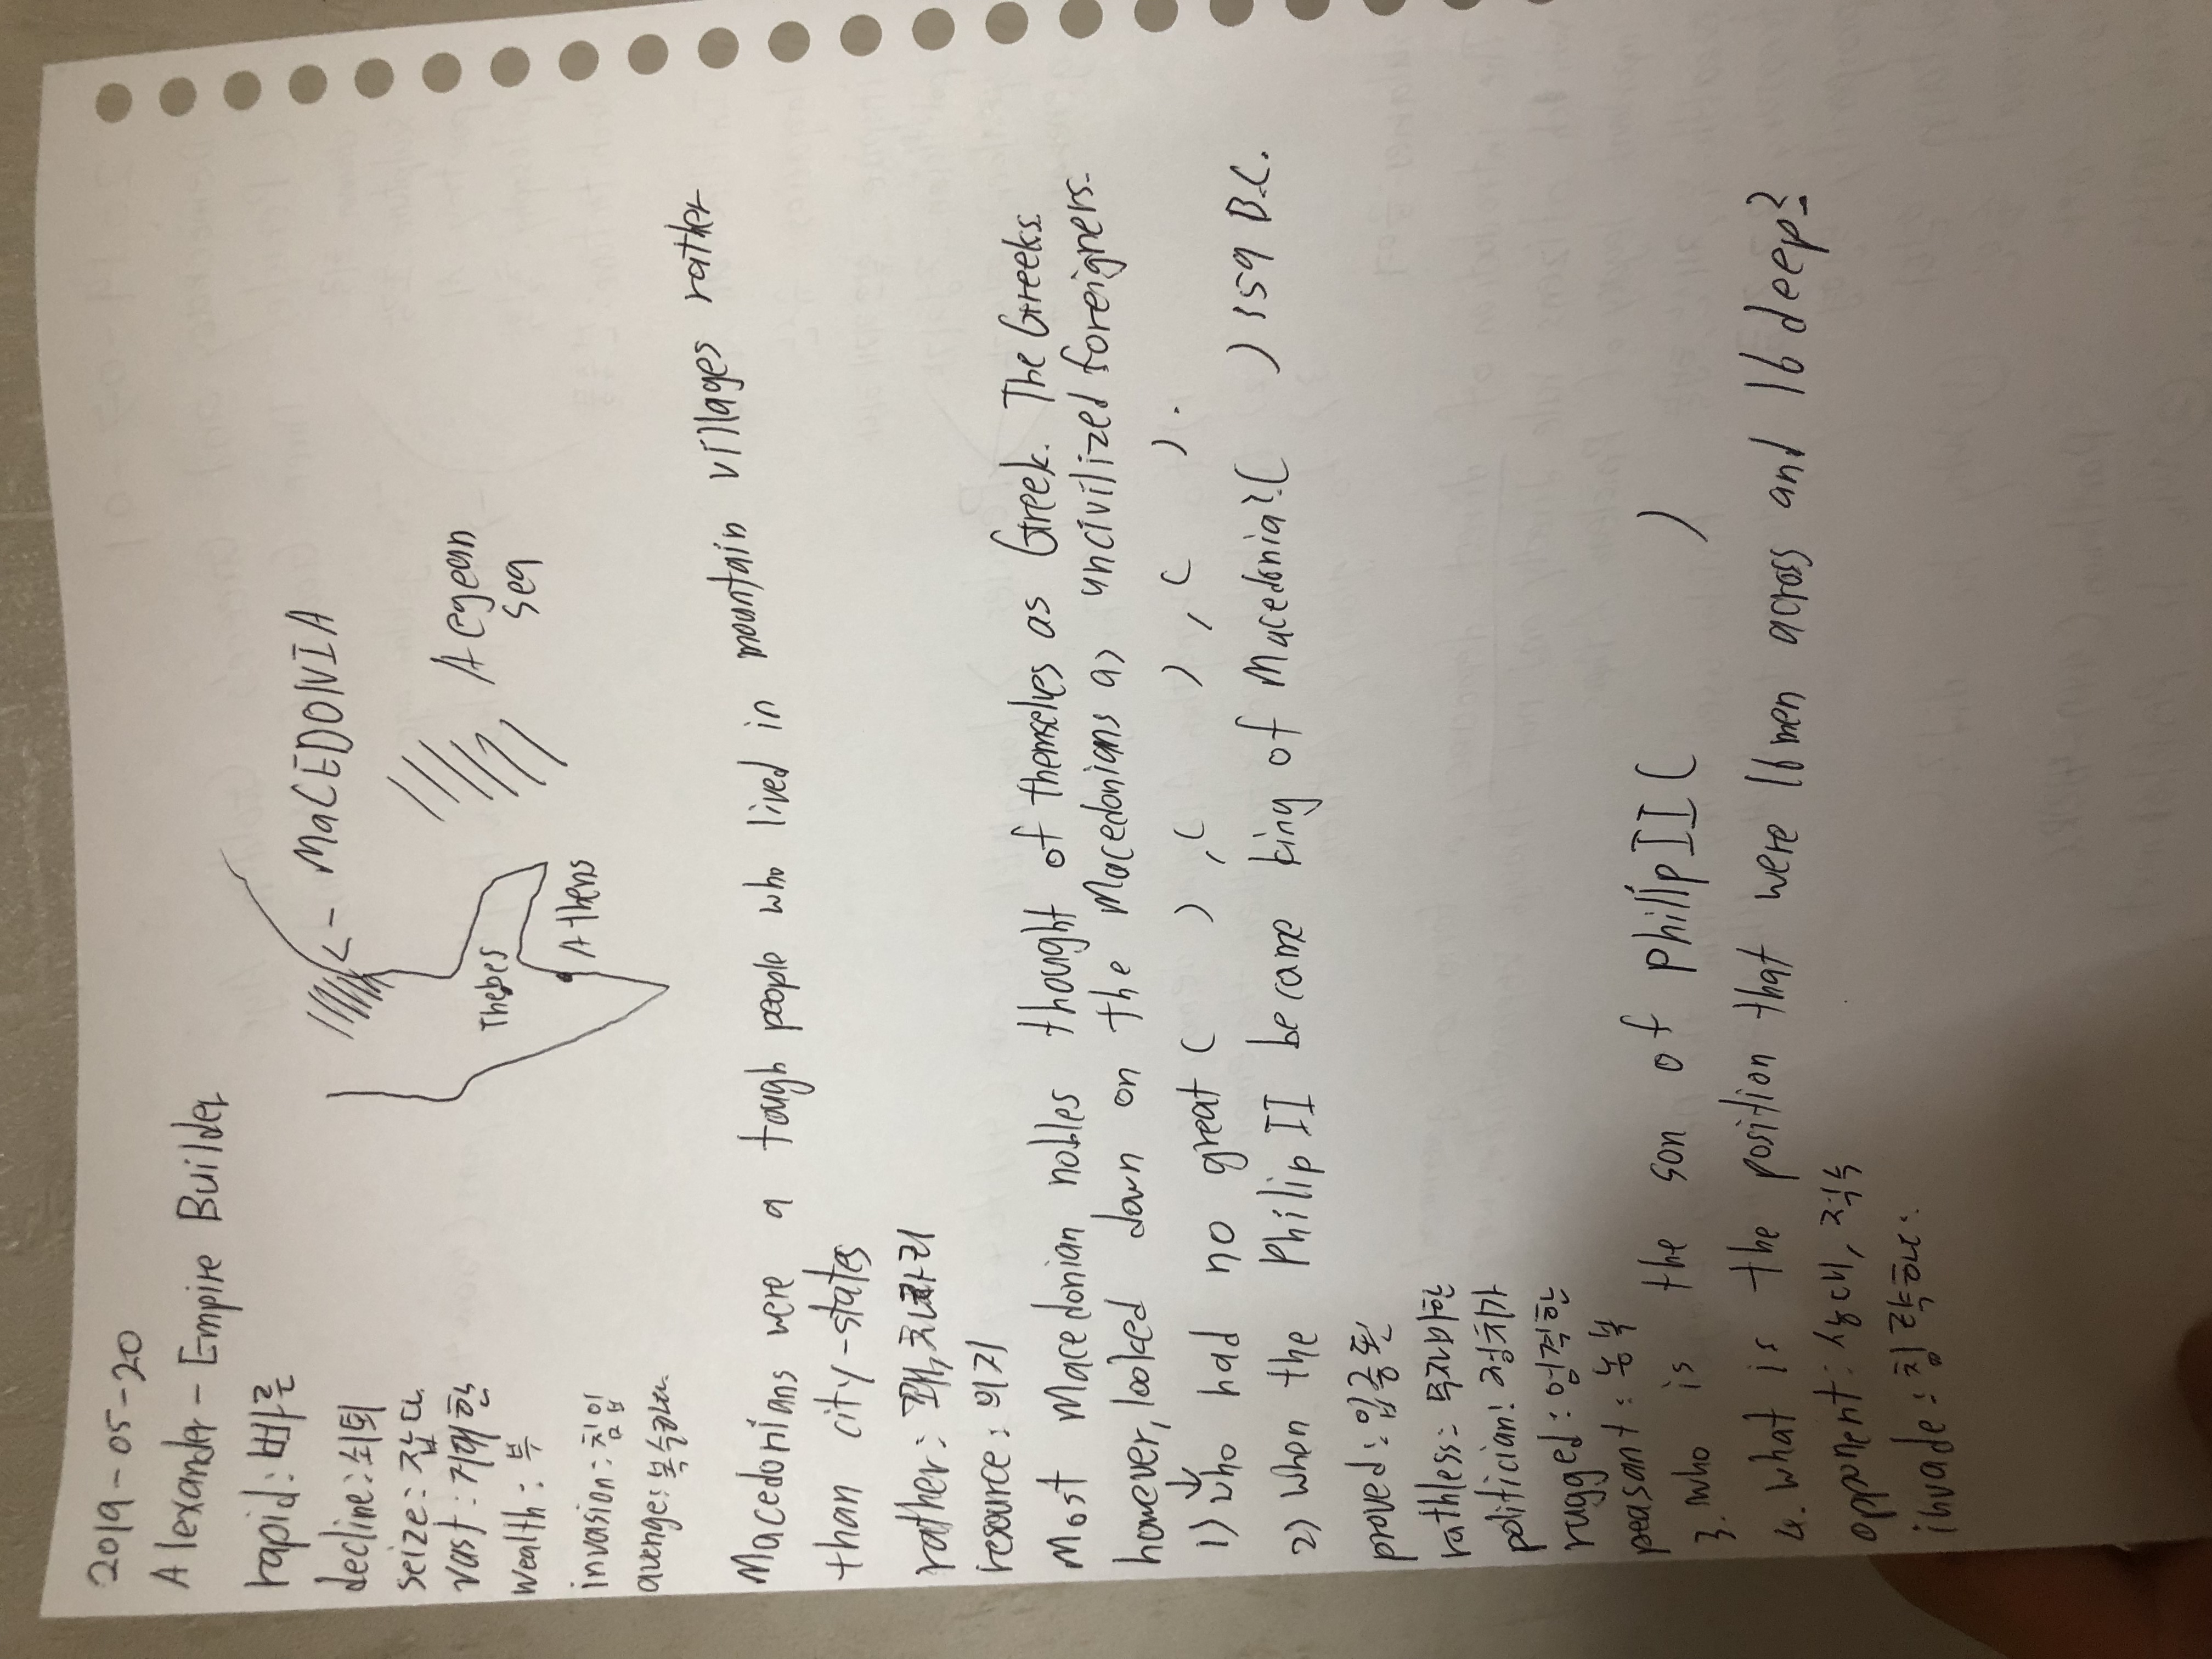 2019-05-20
Alexander - Empire Builder
rapid : 빠른
decline : 쇠퇴
seize : 잡다
vast : 거대한
wealth : 부
invasion : 침입
avenge : 복수하다
MaCEDONIA
Aegean
Sea
Thebes
Athens
Macedonians were a tough people who lived in mountain villages rather
than city-states
rather : 꽤,
resource : 의지
Most Macedonian nobles thought of themselves as Greek. The Greeks
however, looked down on the Macedonians as uncivilized foreigners.
1) who had no great ( ) , ( ) , ( ).
2) when the Philip II became king of Macedonia? ( ) 359 B.C.
proved : 입증된
rathless : 무자비한
politician : 정치가
rugged : 엄격한
peasant : 농부
3. who is the son of Philip II ( )
4. what is the position that were 16 men across and 16 deep?
opponent : 상대, 적수
invade : 침략하는